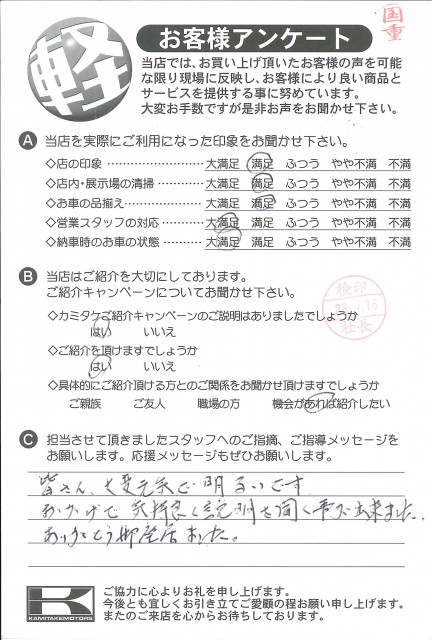 国重
軽
お客様アンケート
当店では、お買い上げ頂いたお客様の声を可能
な限り現場に反映し、お客様により良い商品と
サービスを提供する事に努めています。
大変お手数ですが是非お声をお聞かせ下さい。
A 当店を実際にご利用になった印象をお聞かせ下さい。
◇店の印象 大満足 満足 ふつう やや不満 不満
◇店内・展示場の清掃 大満足 満足 ふつう やや不満 不満
◇お車の品揃え 大満足 満足 ふつう やや不満 不満
◇営業スタッフの対応 大満足 満足 ふつう やや不満 不満
◇納車時のお車の状態 大満足 満足 ふつう やや不満 不満
B 当店はご紹介を大切にしております。
ご紹介キャンペーンについてお聞かせ下さい。
検印
社長
◇カミタケご紹介キャンペーンのご説明はありましたでしょうか
はい いいえ
◇ご紹介を頂けますでしょうか
はい いいえ
◇具体的にご紹介頂ける方とのご関係をお聞かせ頂けますでしょうか
ご親族 ご友人 職場の方 機会があれば紹介したい
C 担当させて頂きましたスタッフへのご指摘、ご指導メッセージを
お願いします。応援メッセージもぜひお願いします。
皆さん、大変元気で明るいです
おかげで気持良く説明を聞く事が出来ました。
ありがとう御座居ました。
K
KAMITAKEMOTORS
ご協力に心よりお礼を申し上げます。
今後とも宜しくお引き立てご愛顧の程お願い申し上げます。
またのご来店を心からお待ちしております。